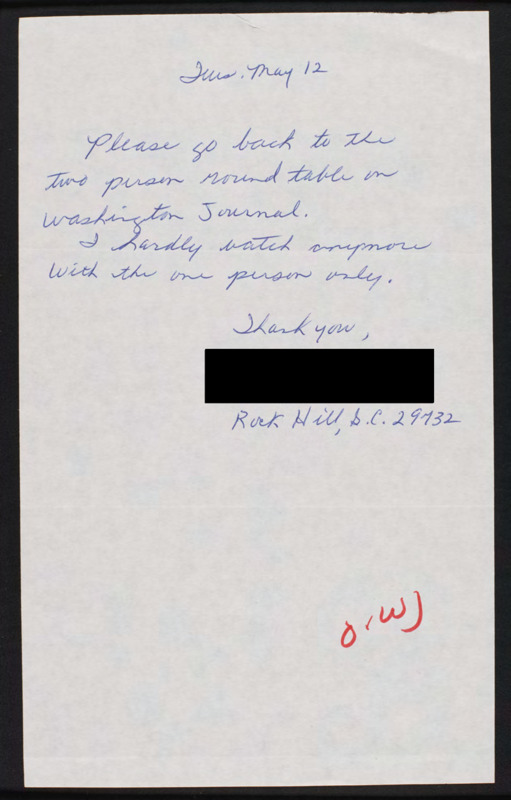 Tues. May 12
Please go back to the
two person round table on
Washington Journal.
I hardly watch anymore
with the one person only.
Thank you,
Rock Hill, S.C. 29732
O, WJ